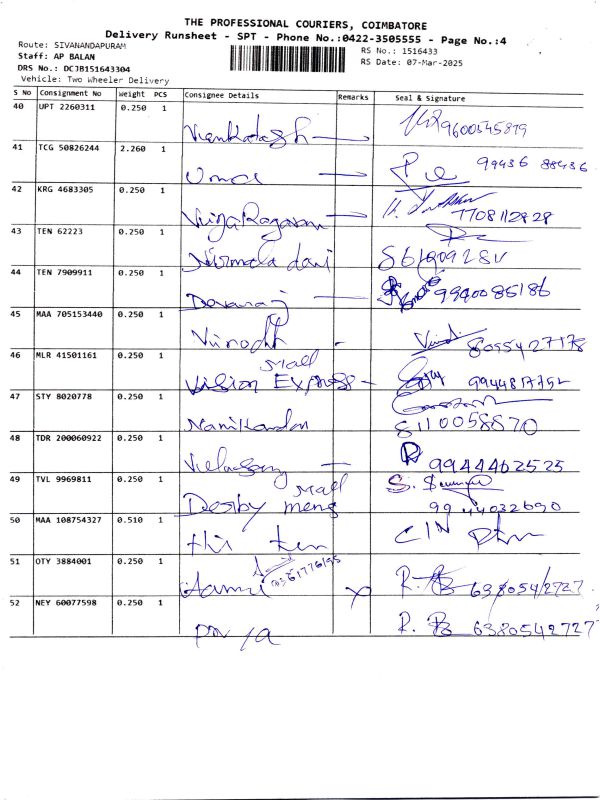 THE PROFESSIONAL COURIERS, COIMBATORE
Delivery Runsheet - SPT - Phone No.:0422-3505555 - Page No.:4
Route: SIVANANDAPURAM
Staff: AP BALAN
DRS No.: DCJB151643304
Vehicle: Two Wheeler Delivery
RS No.: 1516433
RS Date: 07-Mar-2025
S No Consignment No Weight PCS Consignee Details Remarks Seal & Signature
40 UPT 2260311 0.250 1 Venkatesh 9600545879
41 TCG 50826244 2.260 1 Uma 99436 88436
42 KRG 4683305 0.250 1 VijaRagavan 7708112828
43 TEN 62223 0.250 1 Nirmala davi
44 TEN 7909911 0.250 1 Devaraj 9940085186
45 MAA 705153440 0.250 1 Vinodh 8055427178
46 MLR 41501161 0.250 1 Vision Express Mall
47 STY 8020778 0.250 1 Manikandan 8110058870
48 TDR 200060922 0.250 1 9944462525
49 TVL 9969811 0.250 1 Mall 9944032690
50 MAA 108754327 0.510 1
51 OTY 3884001 0.250 1 6380542727
52 NEY 60077598 0.250 1 6380542727